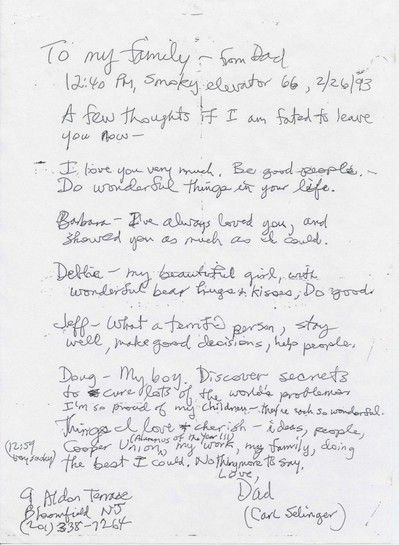 To my family – from Dad
12:40 PM, Smoky elevator 66, 2/26/93
A few thoughts if I am fated to leave
you now –
I love you very much. Be good people. –
Do wonderful things in your life.
Barbara – I've always loved you, and
showed you as much as I could.
Debbie – my beautiful girl, with
wonderful bear hugs & kisses, Do good.
Jeff – What a terrific person, stay
well, make good decisions, help people.
Doug – My boy. Discover secrets
to cure lots of the world's problems
I'm so proud of my children – they're such so wonderful.
Things I love & cherish – ideas, people,
(Alumnus of the Year !!!)
Cooper Union, my work, my family, doing
(12:59
today)
the best I could. Nothing more to say.
Love,
Dad
(Carl Selinger)
9 Aldon Terrace
Bloomfield NJ
(201) 338-7264